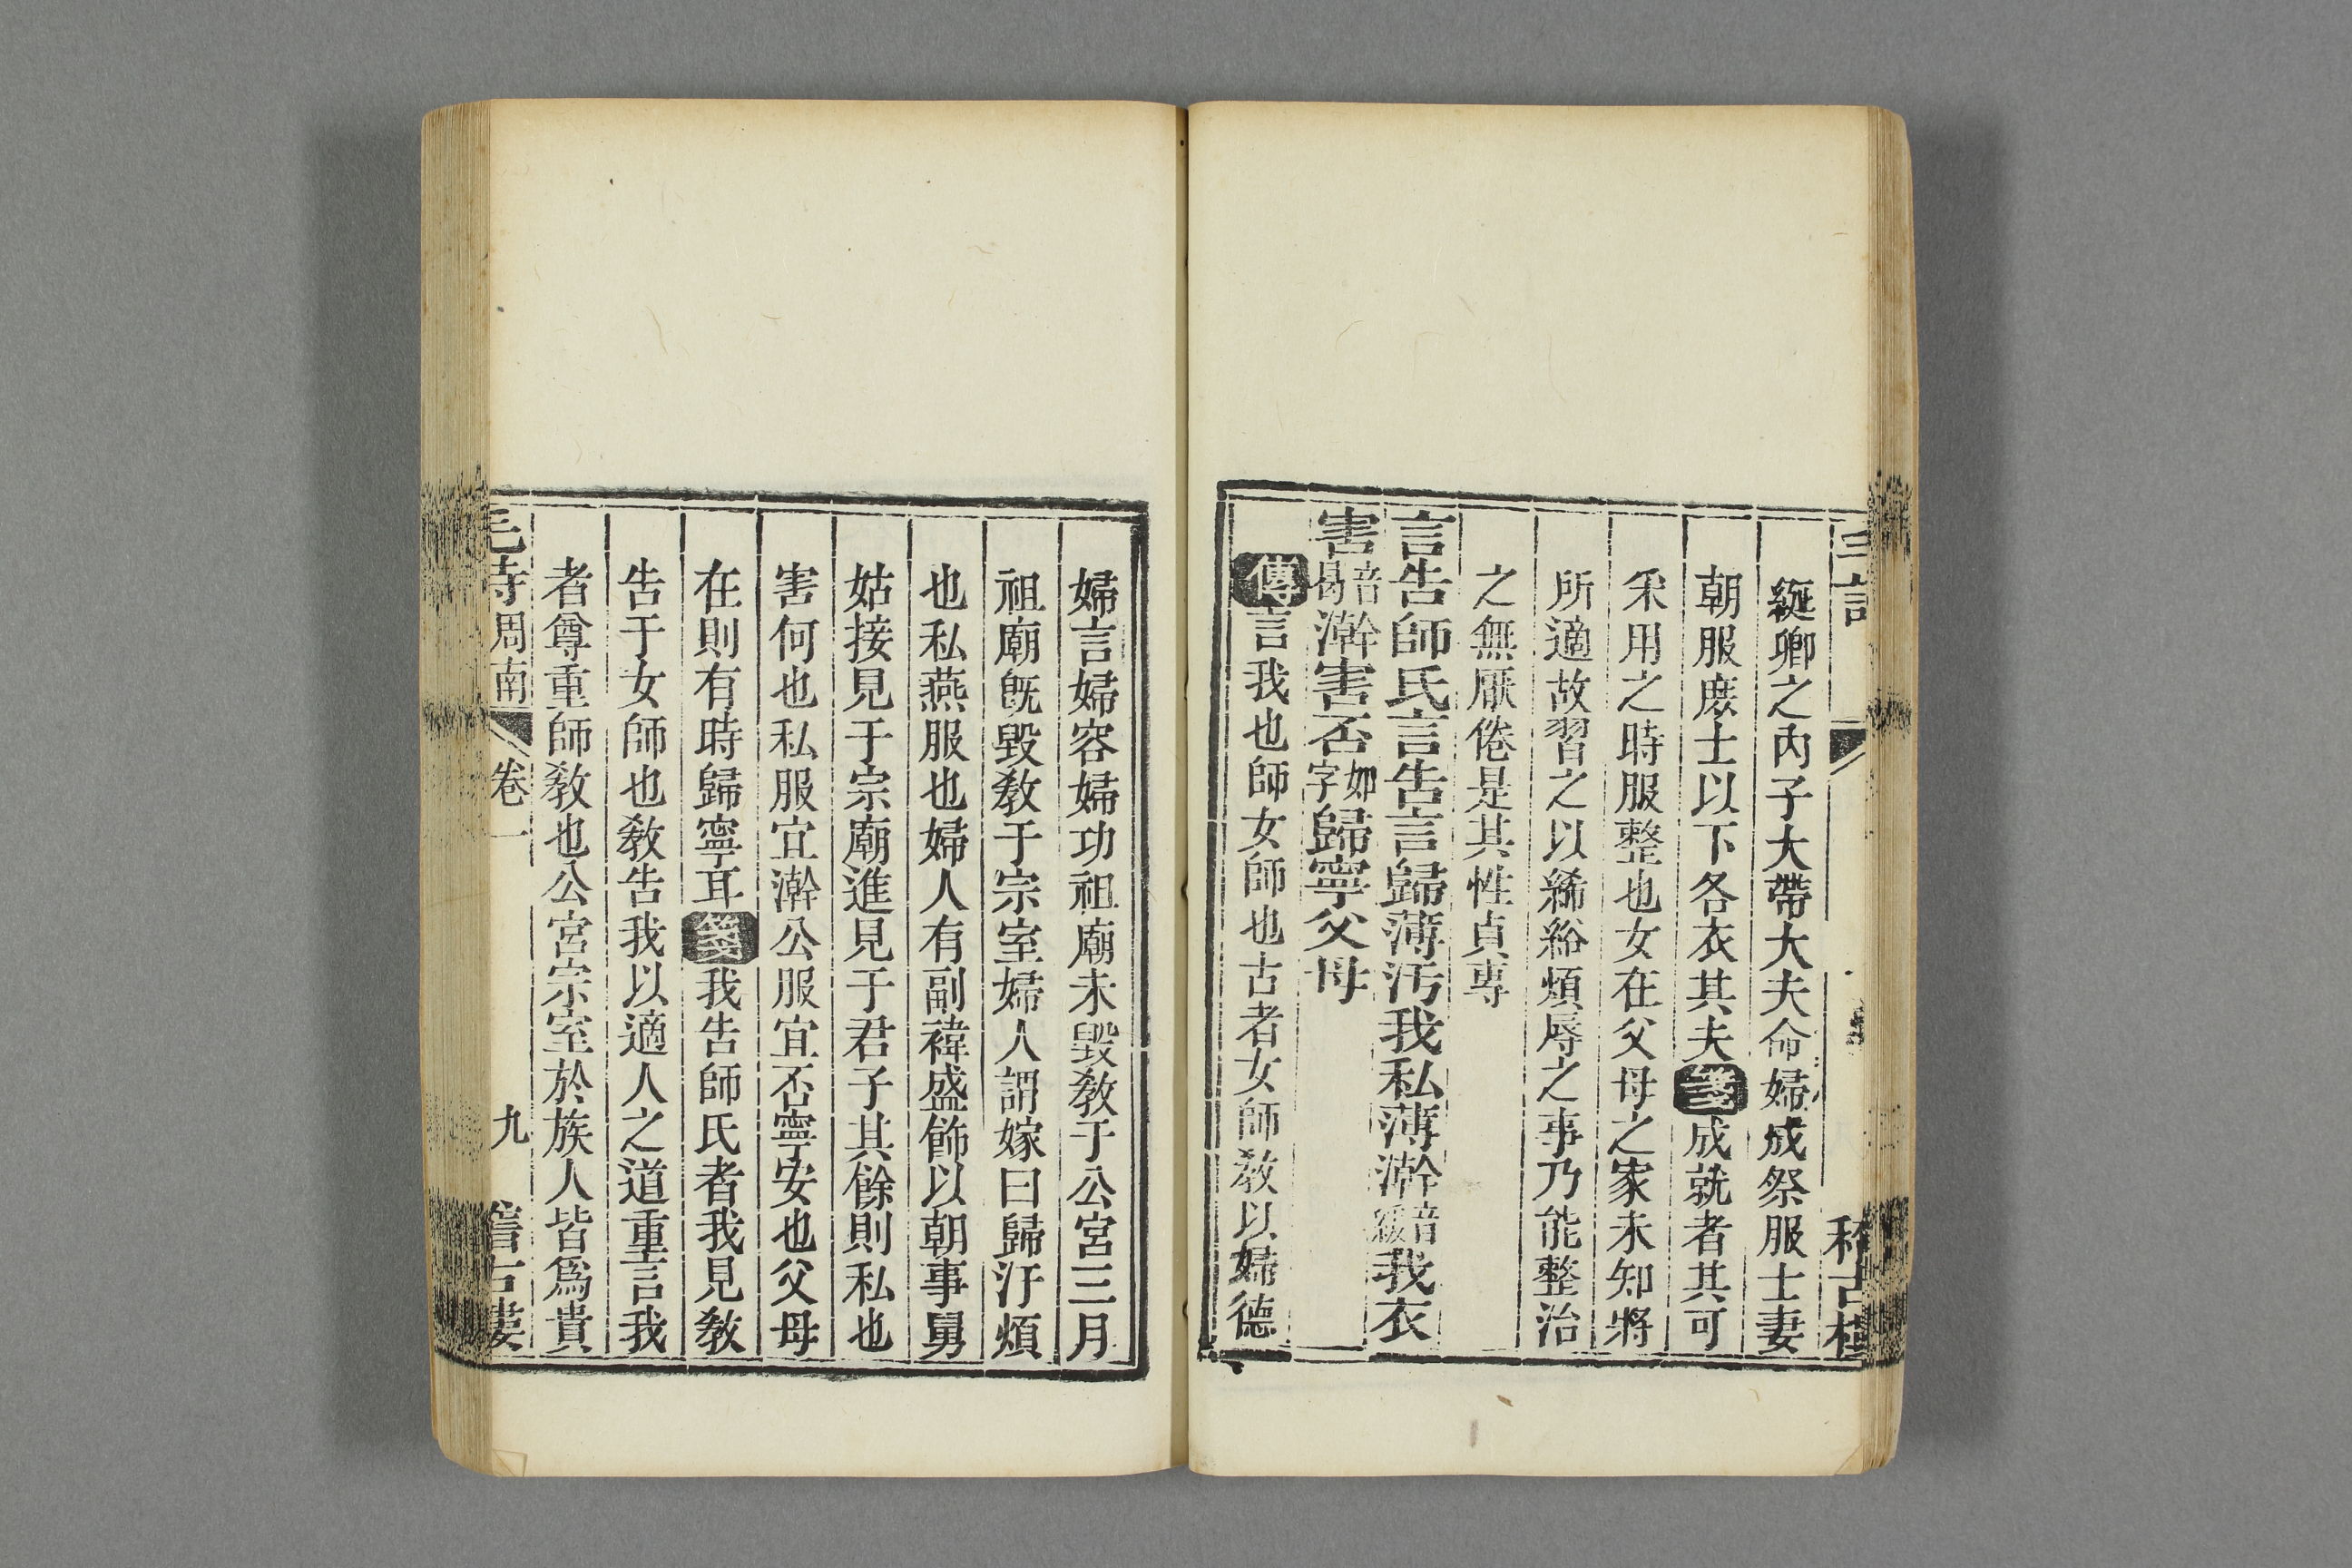 綖卿之內子大帶大夫命婦成祭服士妻
朝服庶士以下各衣其夫箋成就者其可
采用之時服整也女在父母之家未知將
所適故習之以絺綌煩辱之事乃能整治
之無厭倦是其性貞專
言告師氏言告言歸薄汚我私薄澣音緩我衣
害音曷澣害否如字歸寧父母
傳言我也師女師也古者女師敎以婦德
婦言婦容婦功祖廟未毀敎于公宮三月
祖廟旣毀敎于宗室婦人謂嫁曰歸汙煩
也私燕服也婦人有副褘盛飾以朝事舅
姑接見于宗廟進見于君子其餘則私也
害何也私服宜澣公服宜否寧安也父母
在則有時歸寧耳箋我告師氏者我見敎
告于女師也敎告我以適人之道重言我
者尊重師敎也公宮宗室於族人皆爲貴
毛詩周南 卷一 九 稽古樓